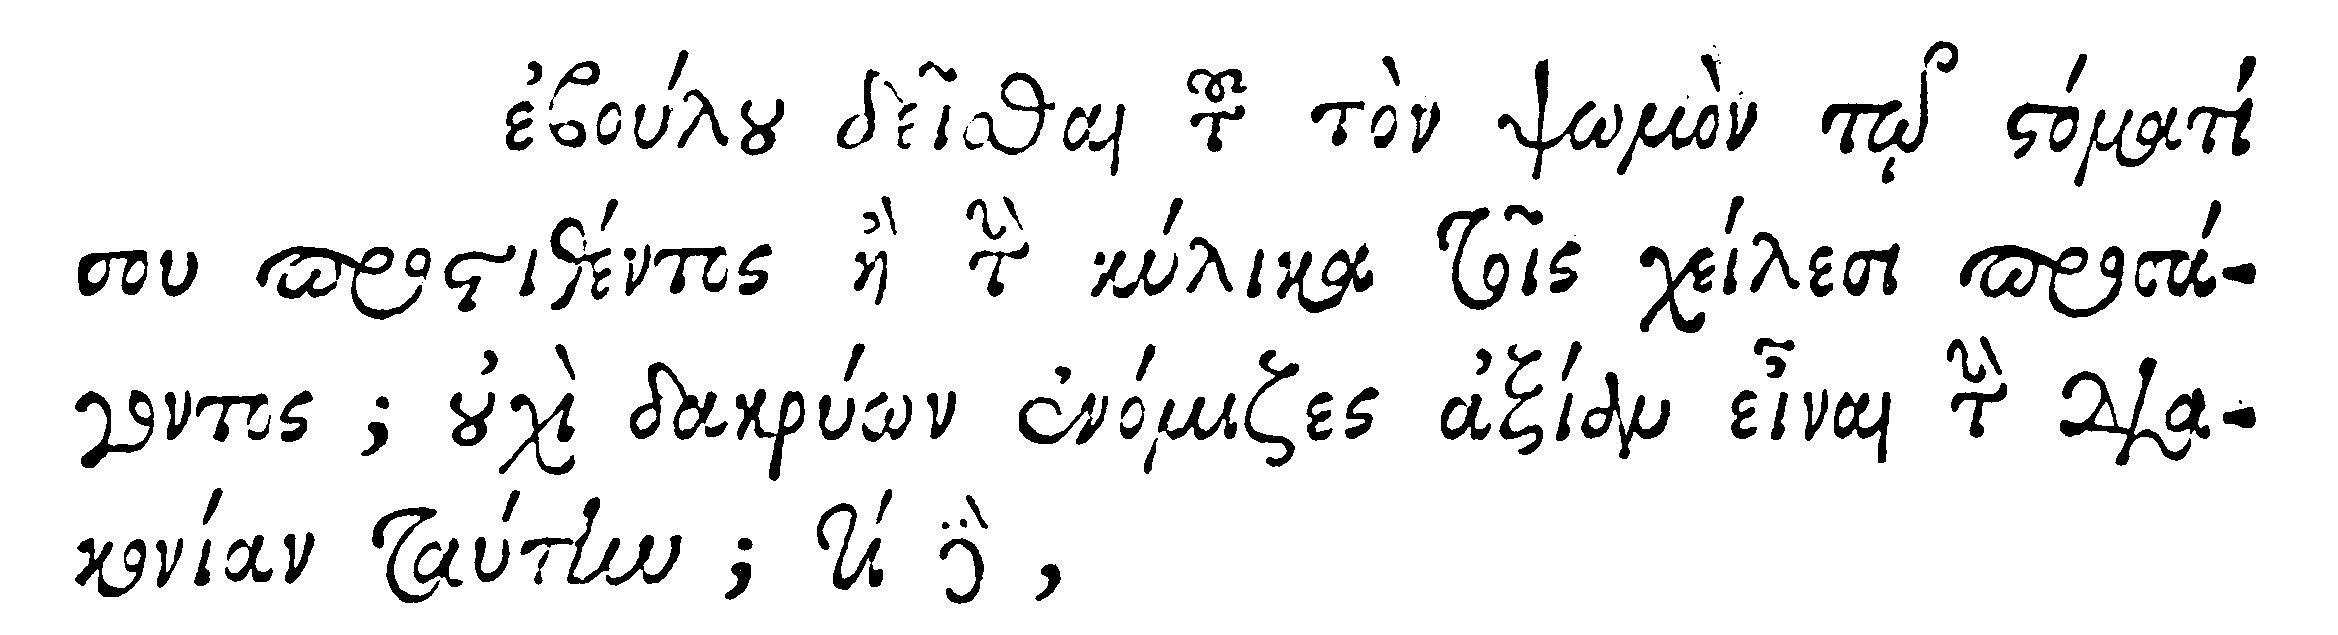 ἐβούλου δεῖσθαι τοῦ τὸν ψωμὸν τῷ στόματί
σου προστιθέντος ἢ τὴν κύλικα τοῖς χείλεσι προσά-
γοντος; οὐχὶ δακρύων ἐνόμιζες ἀξίαν εἶναι τὴν δια-
κονίαν ταύτην; τί δὲ,